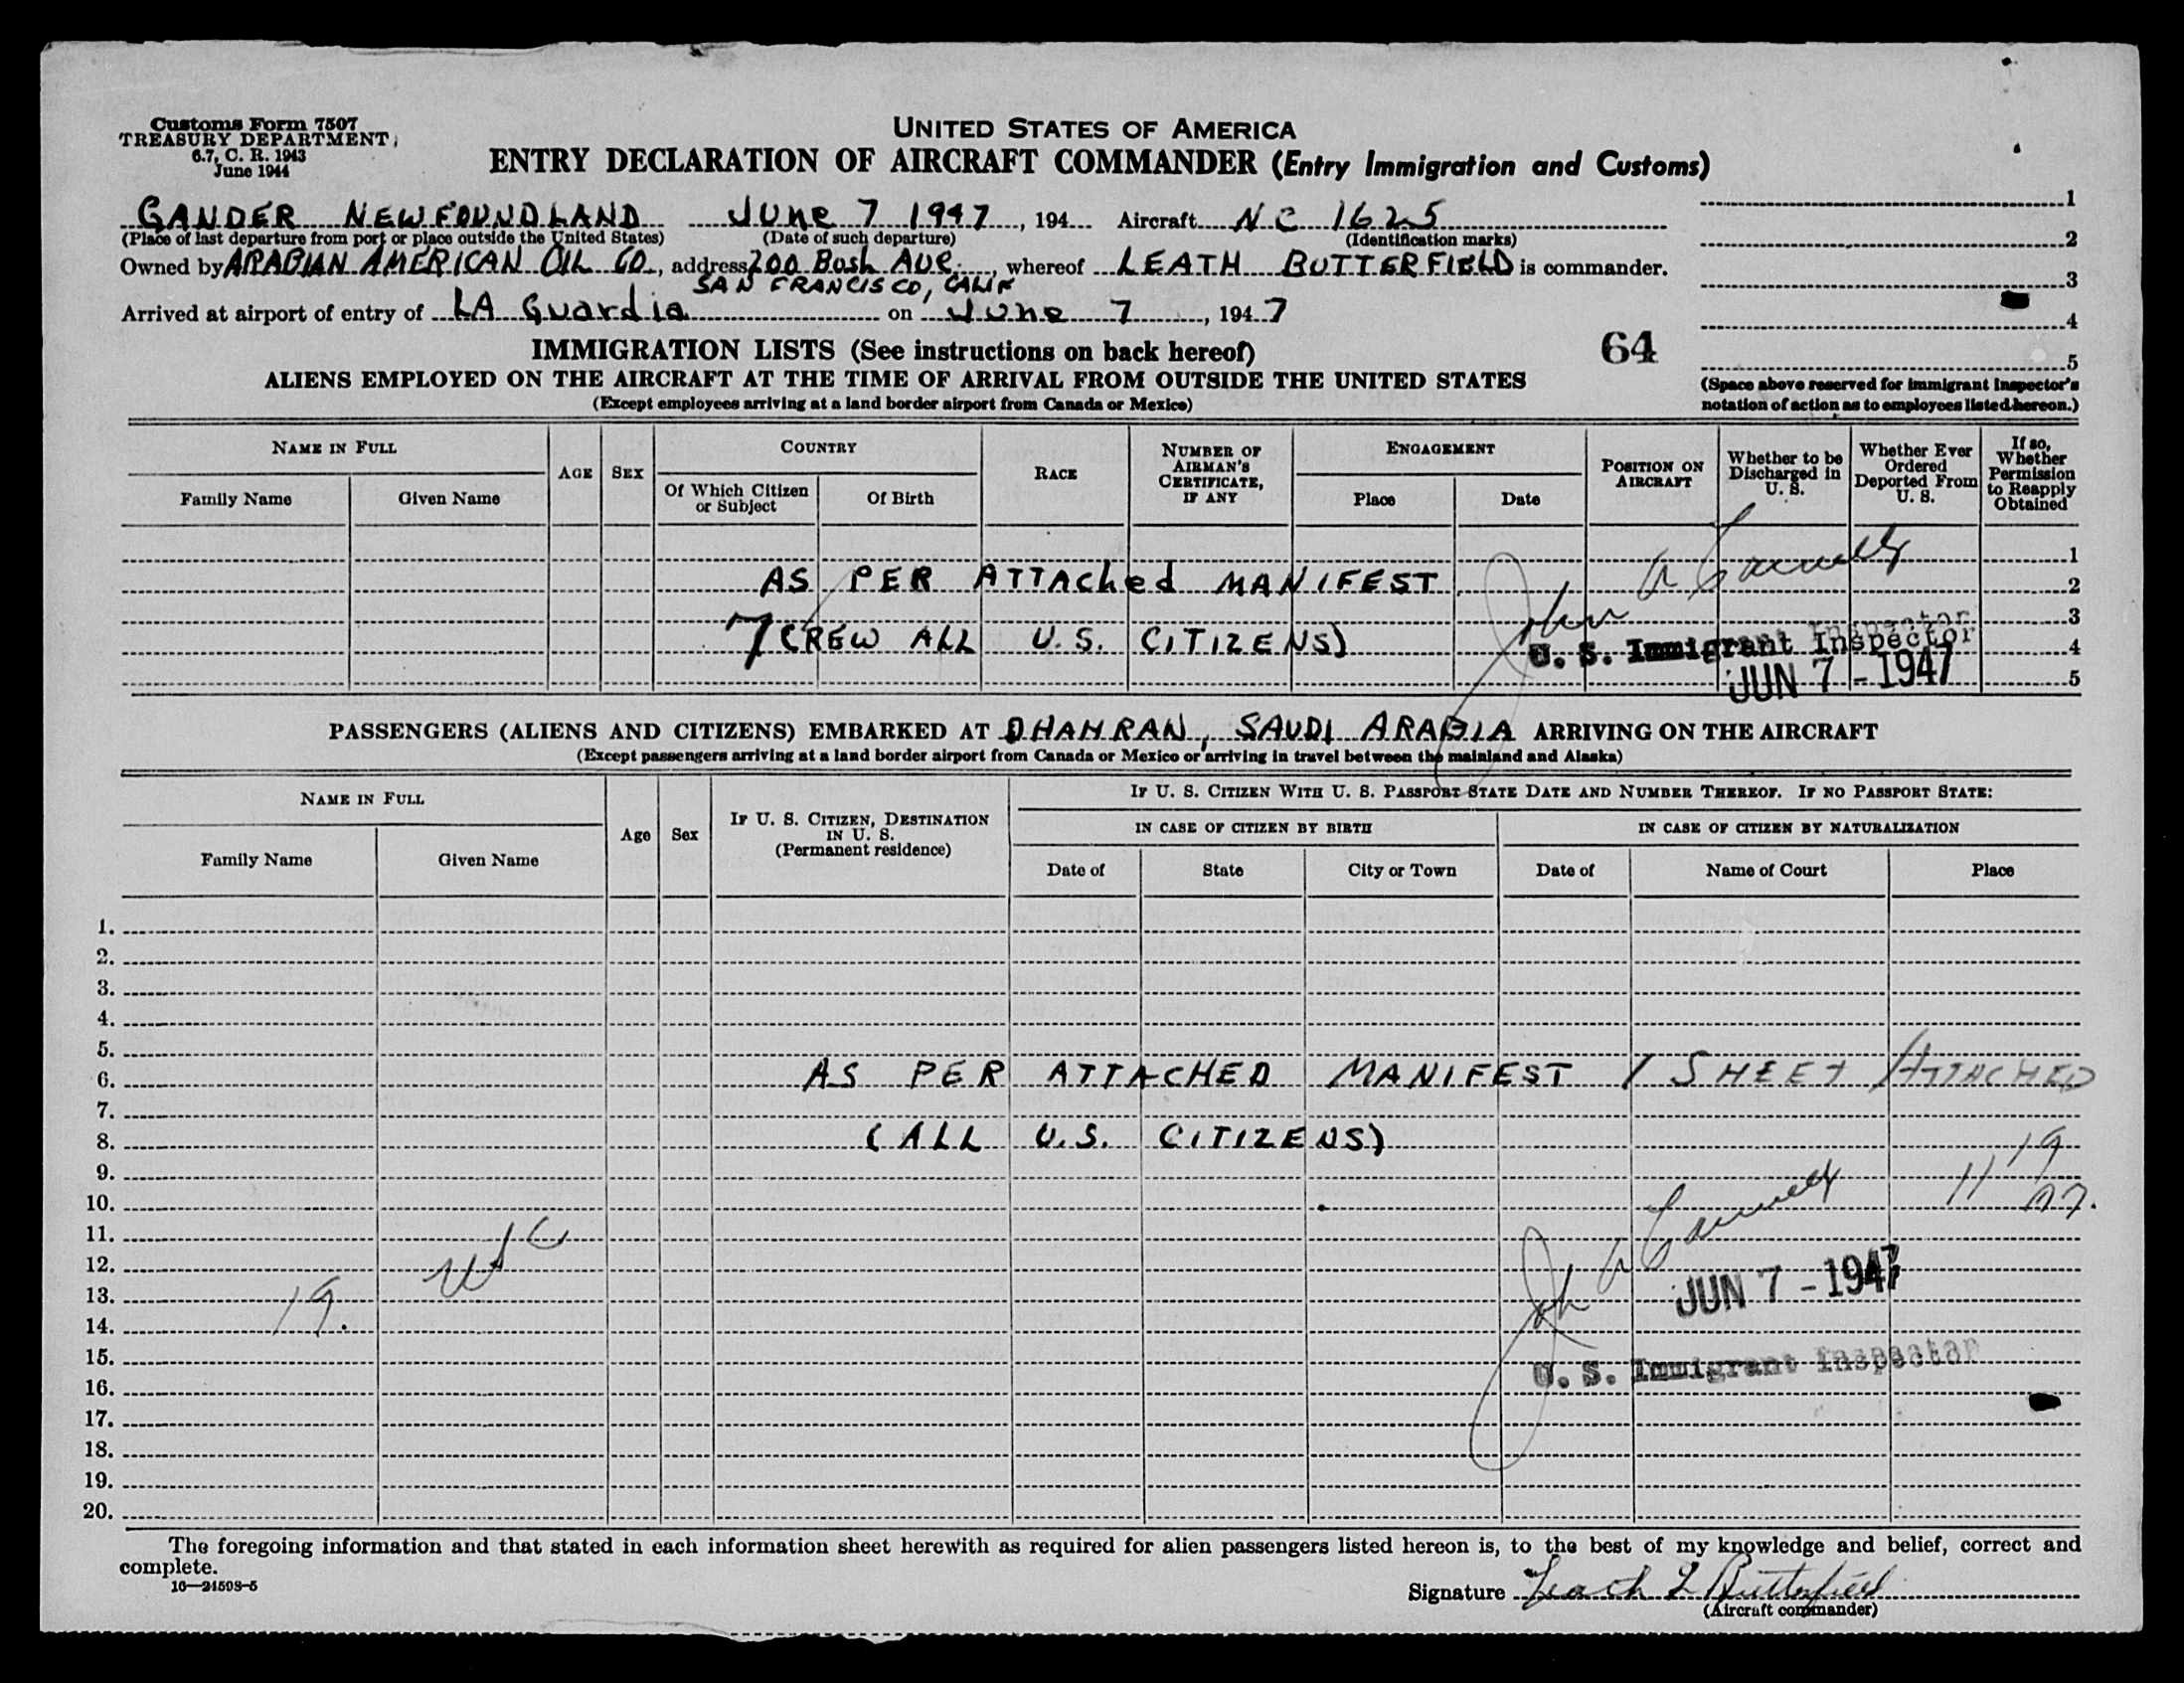 Customs Form 7507
TREASURY DEPARTMENT
6.7, C. R. 1943
June 1944
UNITED STATES OF AMERICA
ENTRY DECLARATION OF AIRCRAFT COMMANDER (Entry Immigration and Customs)
GANDER NEWFOUNDLAND JUNE 7 1947, 194 Aircraft NC 1625
(Place of last departure from port or place outside the United States) (Date of such departure) (Identification marks)
Owned by ARABIAN AMERICAN OIL CO., address 200 Bush Ave., whereof LEATH BUTTERFIELD is commander.
SAN FRANCISCO, CALIF
Arrived at airport of entry of LA Guardia on June 7, 1947
1
2
3
4
5
(Space above reserved for immigrant Inspector's
notation of action as to employees listed hereon.)
64
IMMIGRATION LISTS (See instructions on back hereof)
ALIENS EMPLOYED ON THE AIRCRAFT AT THE TIME OF ARRIVAL FROM OUTSIDE THE UNITED STATES
(Except employees arriving at a land border airport from Canada or Mexico)
NAME IN FULL
Family Name
Given Name
AGE
SEX
COUNTRY
Of Which Citizen
or Subject
Of Birth
RACE
NUMBER OF
AIRMAN'S
CERTIFICATE,
IF ANY
ENGAGEMENT
Place
Date
POSITION ON
AIRCRAFT
Whether to be
Discharged in
U. S.
Whether Ever
Ordered
Deported From
U. S.
If so,
Whether
Permission
to Reapply
Obtained
1
AS PER ATTAched MANIFEST 2
3
7 (CREW ALL U.S. CITIZENS) 4
5
John A
U. S. Immigrant Inspector
JUN 7 - 1947
PASSENGERS (ALIENS AND CITIZENS) EMBARKED AT DHAHRAN, SAUDI ARABIA ARRIVING ON THE AIRCRAFT
(Except passengers arriving at a land border airport from Canada or Mexico or arriving in travel between the mainland and Alaska)
NAME IN FULL
Family Name
Given Name
Age
Sex
IF U. S. CITIZEN, DESTINATION
IN U. S.
(Permanent residence)
IF U. S. CITIZEN WITH U. S. PASSPORT STATE DATE AND NUMBER THEREOF. IF NO PASSPORT STATE:
IN CASE OF CITIZEN BY BIRTH
IN CASE OF CITIZEN BY NATURALIZATION
Date of
State
City or Town
Date of
Name of Court
Place
1.
2.
3.
4.
5.
6. AS PER ATTACHED MANIFEST 1 SHEET ATTACHED
7.
8. (ALL U.S. CITIZENS) 19
9.
10. 11
11.
12. USC
13.
14. 19.
15.
16.
17.
18.
19.
20.
John A
JUN 7 - 1947
U. S. Immigrant Inspector
The foregoing information and that stated in each information sheet herewith as required for alien passengers listed hereon is, to the best of my knowledge and belief, correct and
complete.
16—24598-5
Signature Leath L Butterfield
(Aircraft commander)